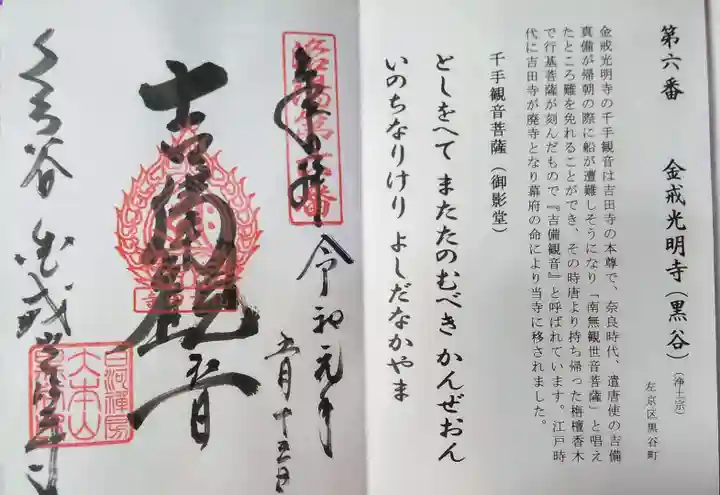 第六番 金戒光明寺(黒谷)(浄土宗)
左京区黒谷町
金戒光明寺の千手観音は吉田寺の本尊で、奈良時代、遣唐使の吉備
真備が帰朝の際に船が遭難しそうになり「南無観世音菩薩」と唱え
たところ難を免れることができ、その時唐より持ち帰った栴檀香木
で行基菩薩が刻んだもので『吉備観音』と呼ばれています。江戸時
代に吉田寺が廃寺となり幕府の命により当寺に移されました。
千手観音菩薩(御影堂)
としをへて またたのむべき かんぜおん
いのちなりけり よしだなかやま
奉拝
洛陽第六番
令和元年
五月十五日
吉備観音
くろ谷 金戒光明寺
白河禅房
大本山